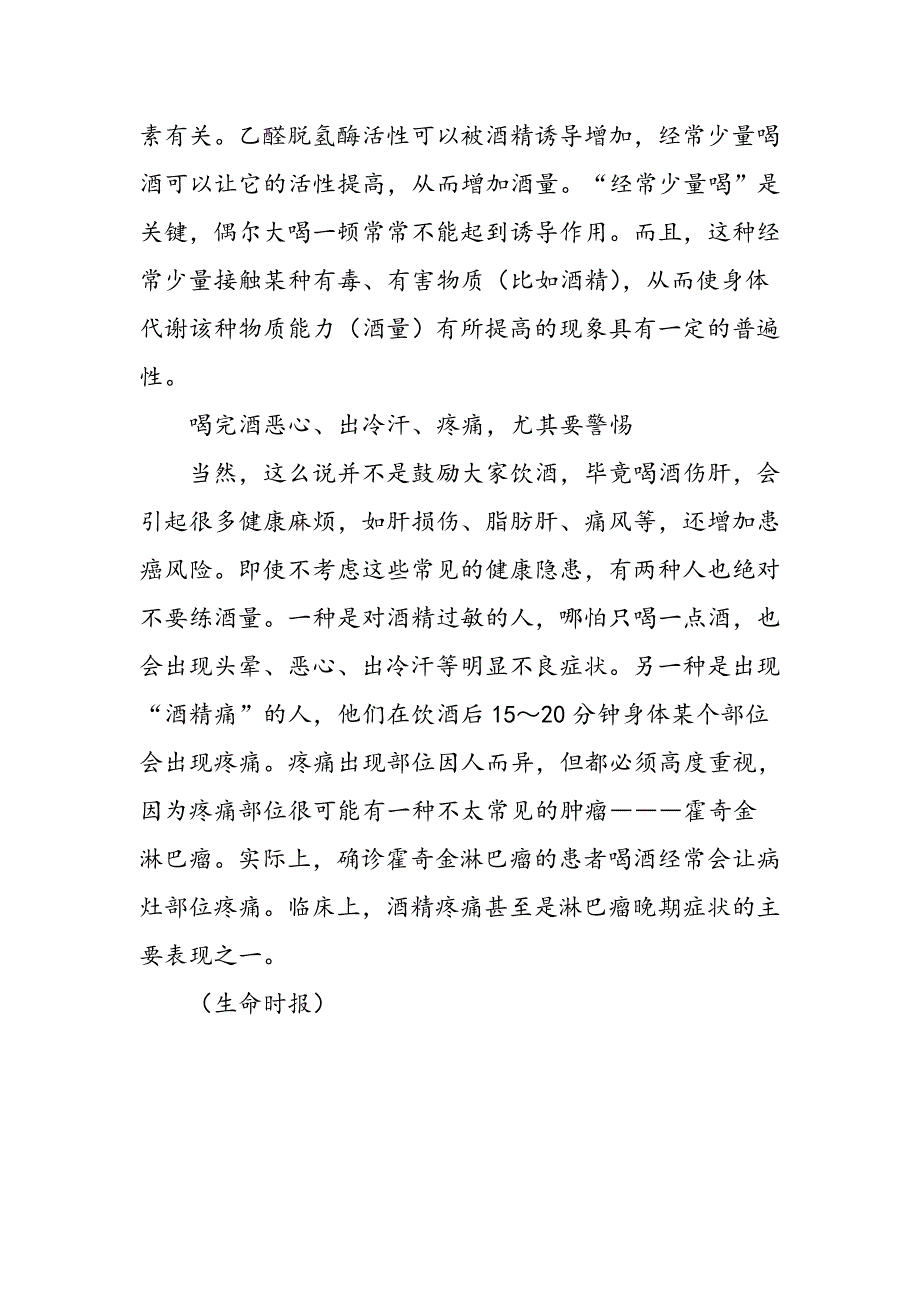 素有关。乙醛脱氢酶活性可以被酒精诱导增加，经常少量喝
酒可以让它的活性提高，从而增加酒量。“经常少量喝”是
关键，偶尔大喝一顿常常不能起到诱导作用。而且，这种经
常少量接触某种有毒、有害物质（比如酒精），从而使身体
代谢该种物质能力（酒量）有所提高的现象具有一定的普遍
性。
喝完酒恶心、出冷汗、疼痛，尤其要警惕
当然，这么说并不是鼓励大家饮酒，毕竟喝酒伤肝，会
引起很多健康麻烦，如肝损伤、脂肪肝、痛风等，还增加患
癌风险。即使不考虑这些常见的健康隐患，有两种人也绝对
不要练酒量。一种是对酒精过敏的人，哪怕只喝一点酒，也
会出现头晕、恶心、出冷汗等明显不良症状。另一种是出现
“酒精痛”的人，他们在饮酒后15～20分钟身体某个部位
会出现疼痛。疼痛出现部位因人而异，但都必须高度重视，
因为疼痛部位很可能有一种不太常见的肿瘤———霍奇金
淋巴瘤。实际上，确诊霍奇金淋巴瘤的患者喝酒经常会让病
灶部位疼痛。临床上，酒精疼痛甚至是淋巴瘤晚期症状的主
要表现之一。
（生命时报）